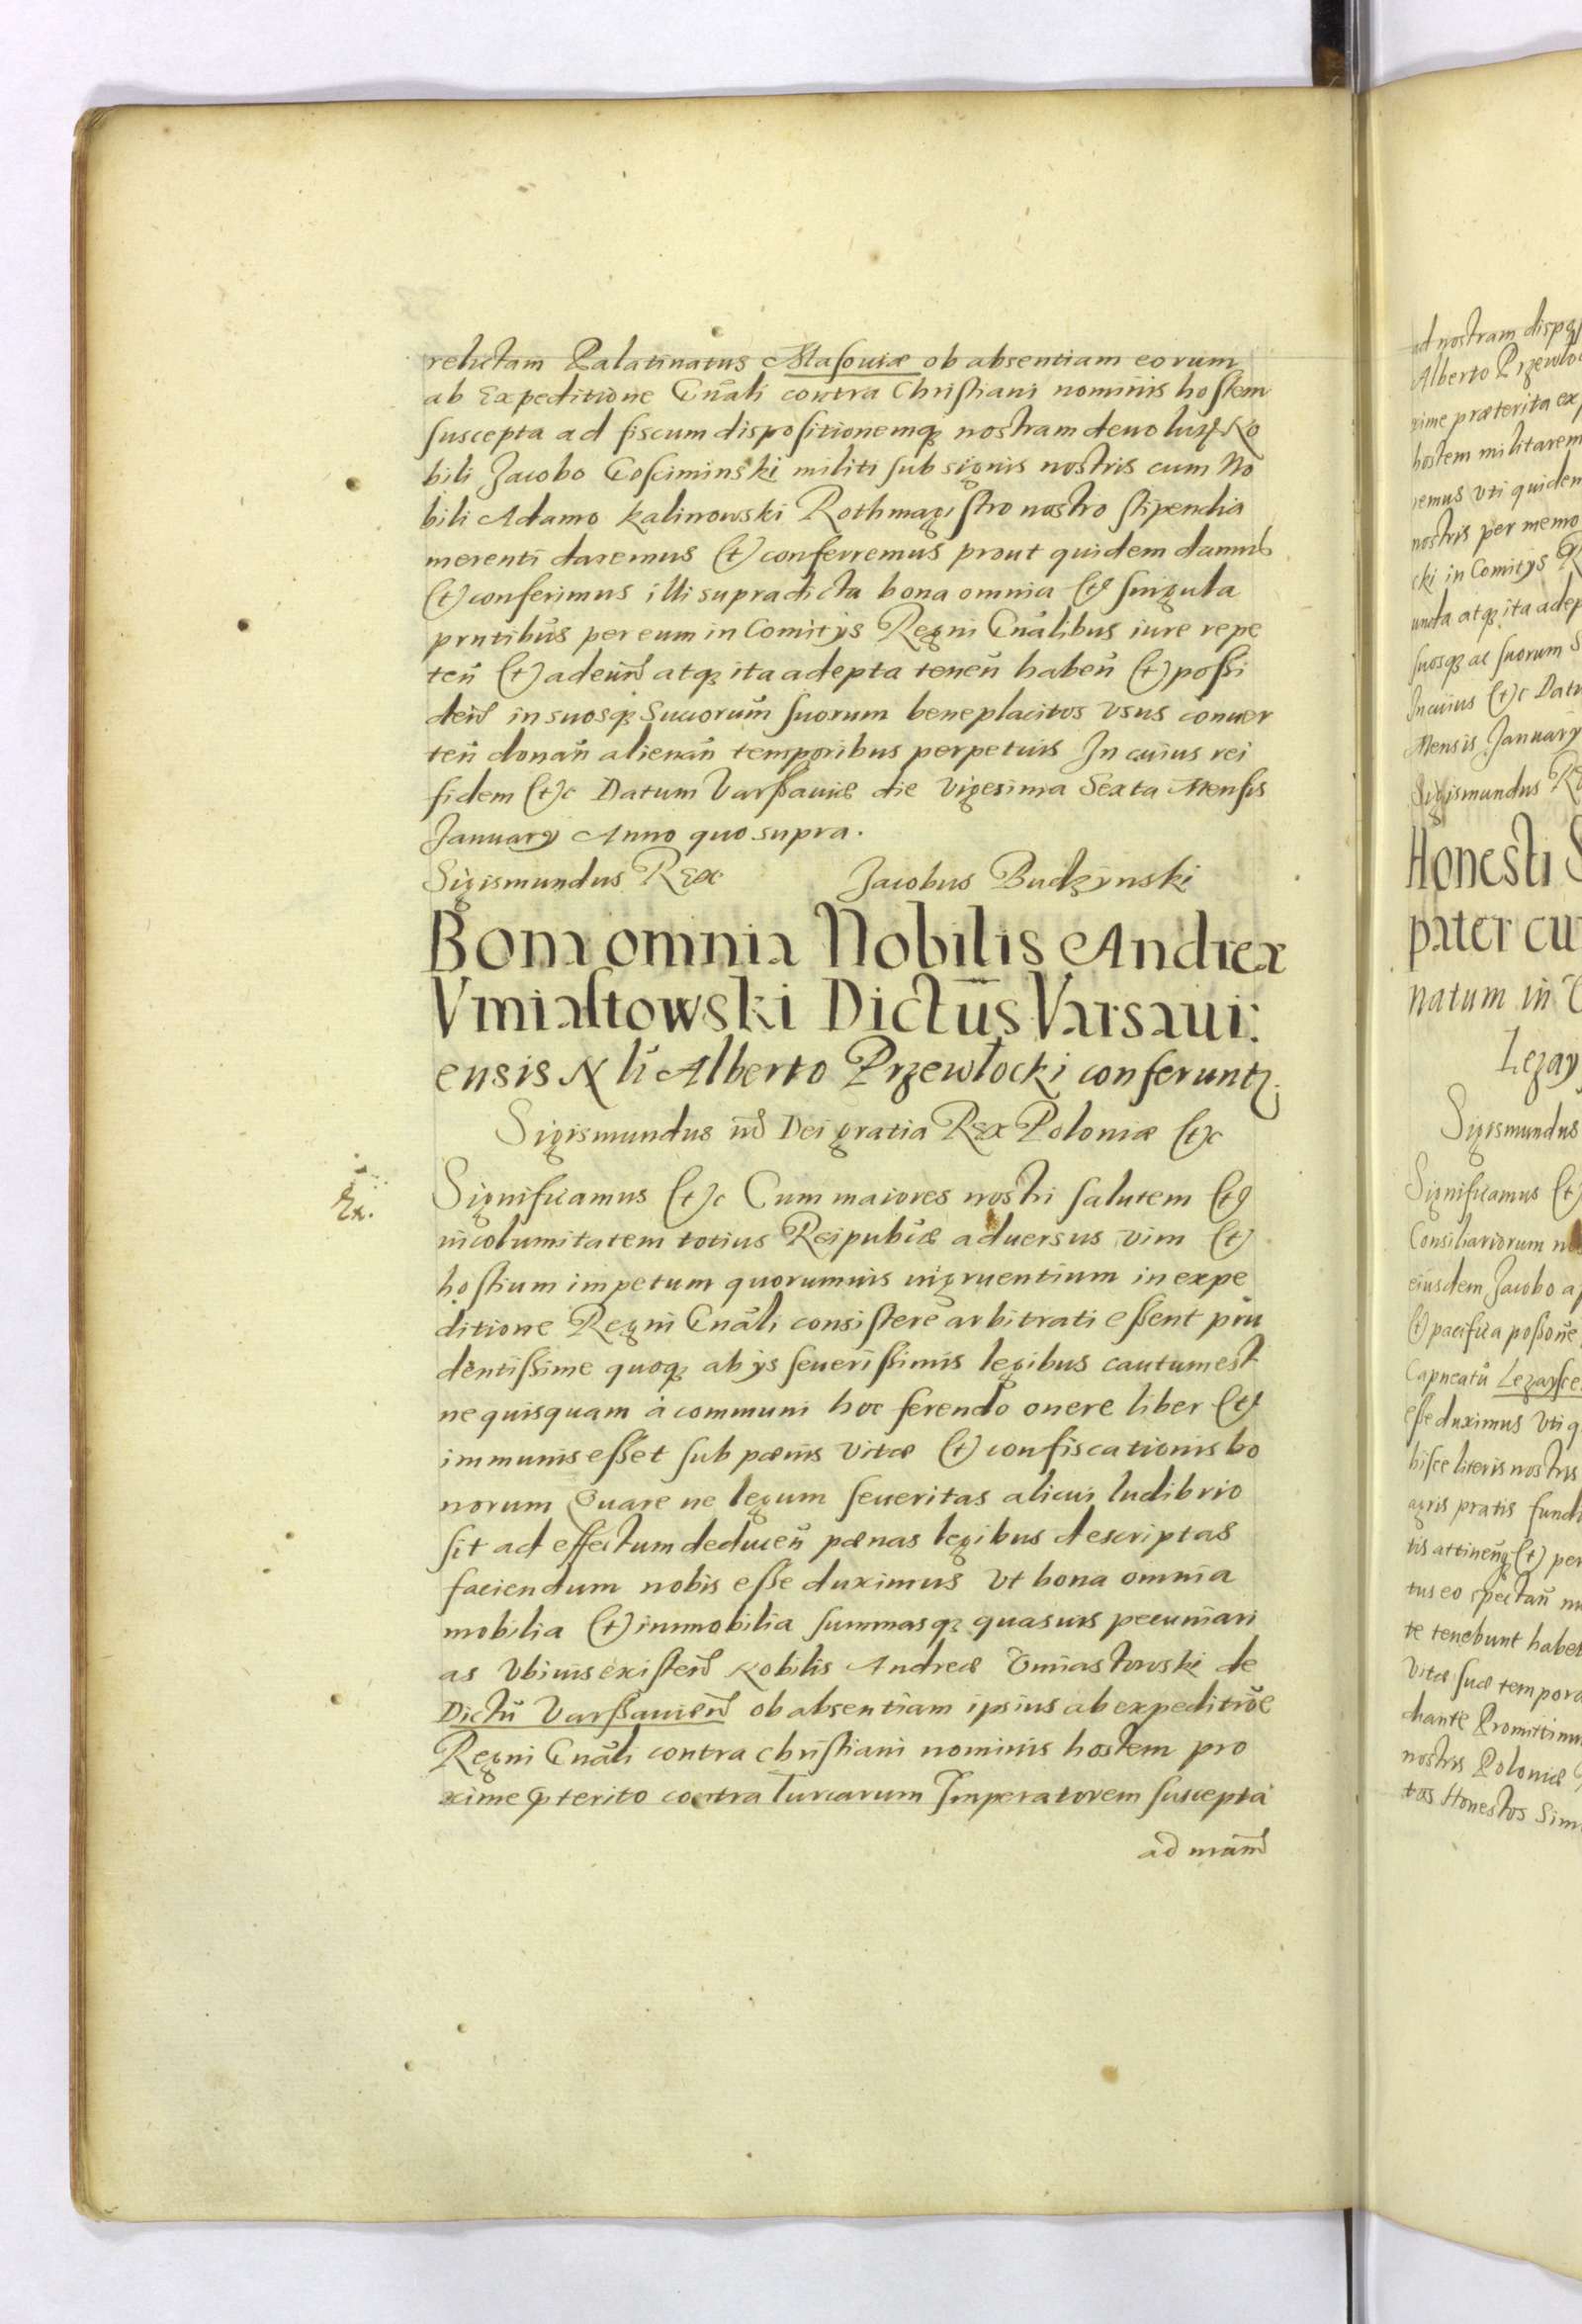 relictam Palatinatus Masoviæ ob absentiam eorum
ab Expeditione Gnãli contra Christiani nominis hostem
suscepta ad fiscum dispositionemq; nostram devolutą No
bili Jacobo Gosciminski militi sub signis nostris cum No
bili Adamo Kalinowski Rothmagistro nostro stipendia
merenti daremus (et) conferremus prout quidem damus
(et) conferimus illi supradicta bona omnia (et) singula
pñtibus per eum in Comitys Regni Gnãlibus iure repe
teñ (et) adeuñd atq; ita adepta teneñ habeñ (et) possi
deñd in suosq; Succorum suorum beneplacitos vsus conver
teñ donañ alienañ temporibus perpetuis In cuius rei
fidem (et)c Datum Varssaviæ die Vigesima Sexta Mensis
January Anno quo supra.
Sigismundus Rex Jacobus Budzynski
Bona omnia Nobilis Andreæ
Vmiastowski Dictus Varsavi:
ensis Nli Alberto Przewłocki conferuntz.
Sigismundus iiid Dei gratia Rex Poloniæ (et)c
Ex.
Significamus (et)c Cum maiores nostri salutem (et)
incolumitatem totius Reipublcæ adversus vim (et)
hostium impetum quorumvis ingruentium in expe
ditione Regni Gnãli consistere arbitrati essent pru
dentissime quoq; ab ys severissimis legibus cautum est
ne quisquam à communi hoc ferendo onere liber (et)
immunis esset sub pænis vitæ (et) confiscationis bo
norum Quare ne legum severitas alicui ludibrio
sit ad effectum deduceñ pænas legibus descriptas
faciendum nobis esse duximus Vt bona omnia
mobilia (et) immobilia summasq; quasuis pecuniari
as Vbiuis existeñd Nobilis Andreæ Vmiastowski de
Dictũ Varssavieñd ob absentiam ipsius ab expeditiõe
Regni Gnãli contra Christiani nominis hostem pro
xime pterito contra Turcarum Imperatorem suscepta
ad nrãm
ad nostram disp
Alberto Przewło
xime præterita ex
hostem militarem
remus vti quidem
nostris per memo
cki in Comitys R
unda atq; ita adep
suosq; ac suorum S
In cuius (et)c Datu
Mensis January
Sigismundus Re
Honesti S
pater cu
natum in
Lezay
Sigismundus
Significamus (et)
Consiliariorum no
eiusdem Jacobo a
(et) pacifica possone
Capneatũ Lezaysce
esse duximus Vti q
hisce literis nostris
agris pratis fundi
tis attineñq; (et) per
tus eo spectañ
te tenebunt habe
Vitæ suæ tempora
dhante Promittimu
nostris Poloniæ
tos Honestos Sim